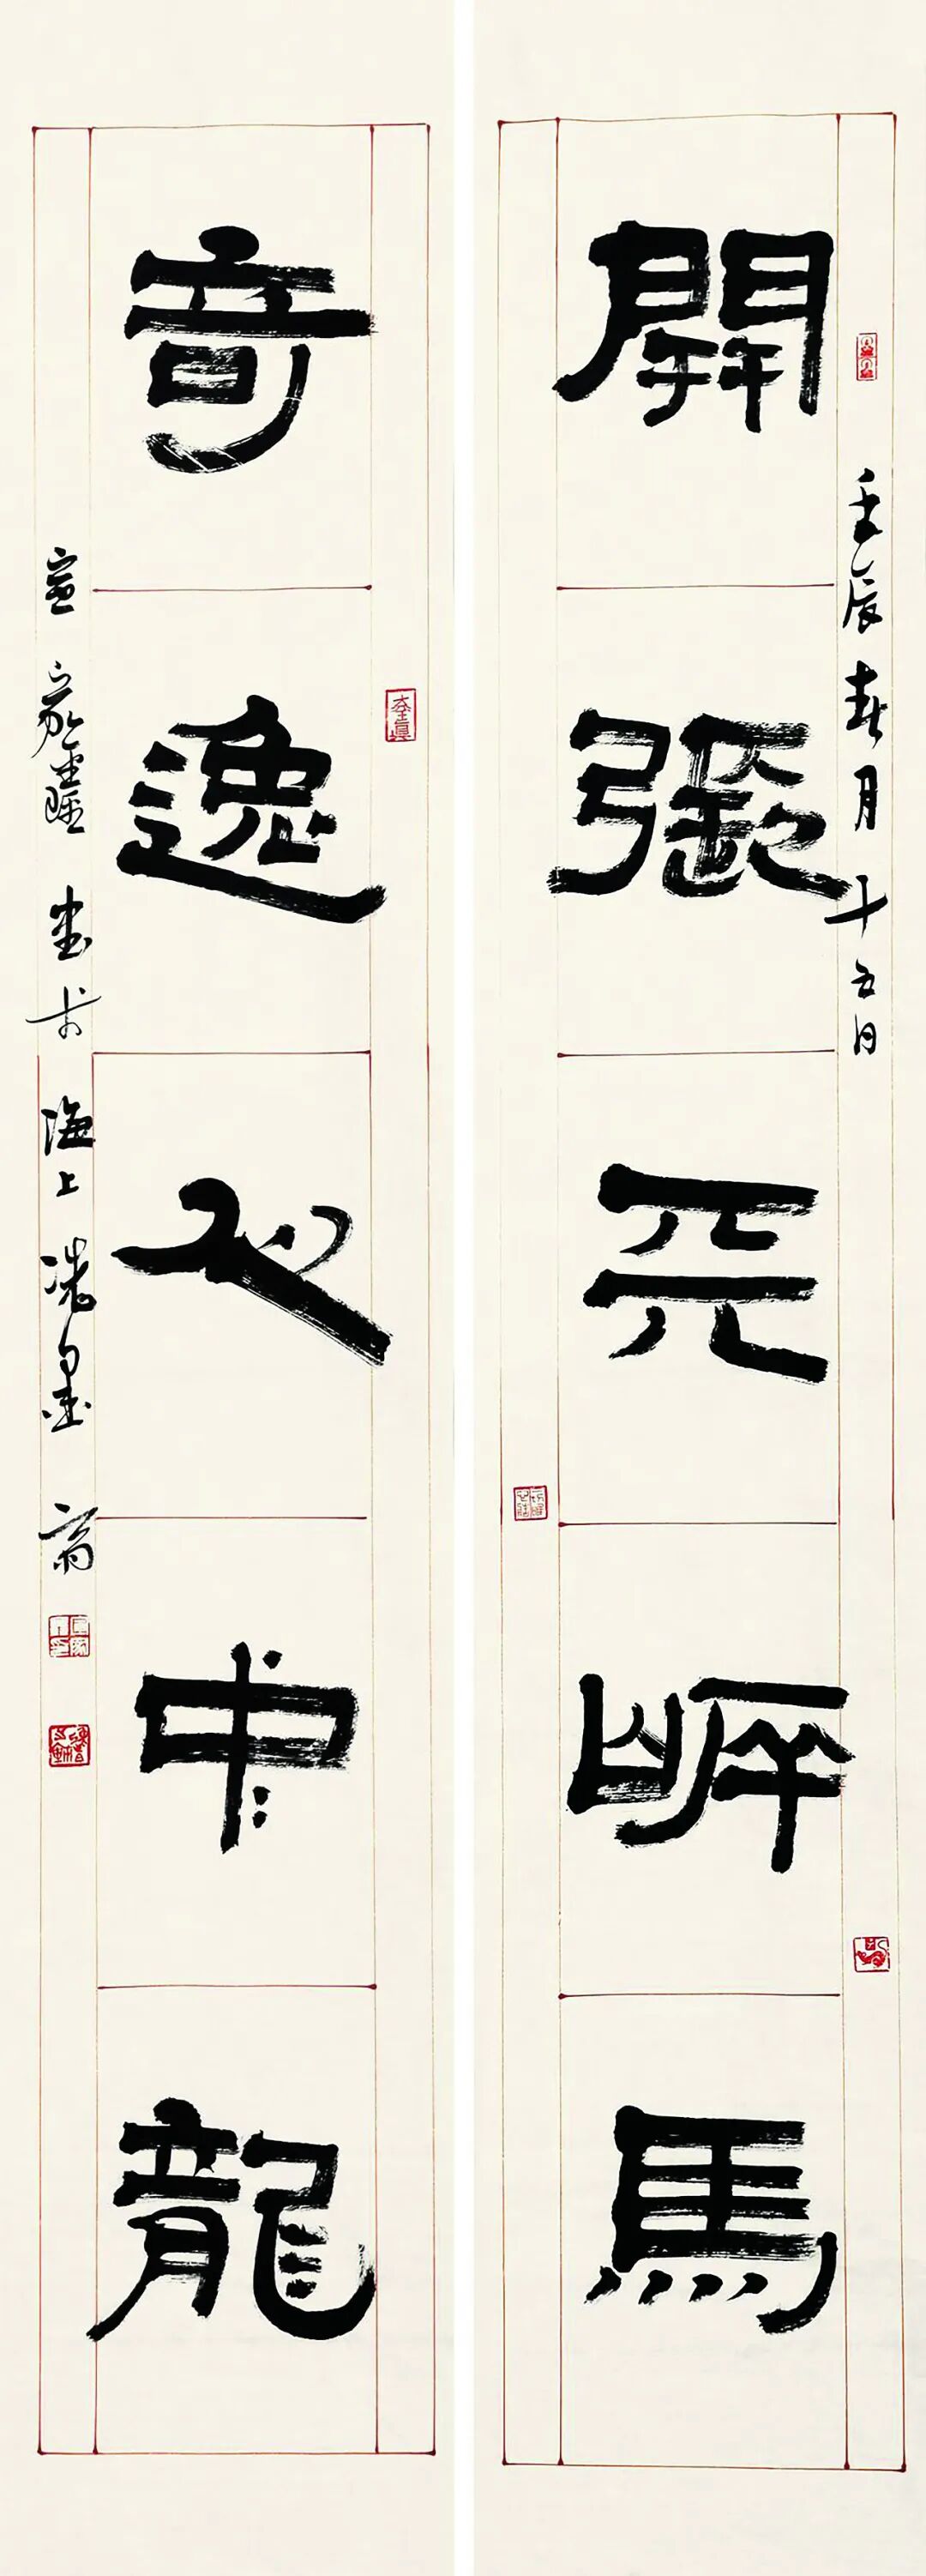 壬辰春月十五日
開張天岸馬
奇逸人中龍
宣家鑫書於海上墨齋